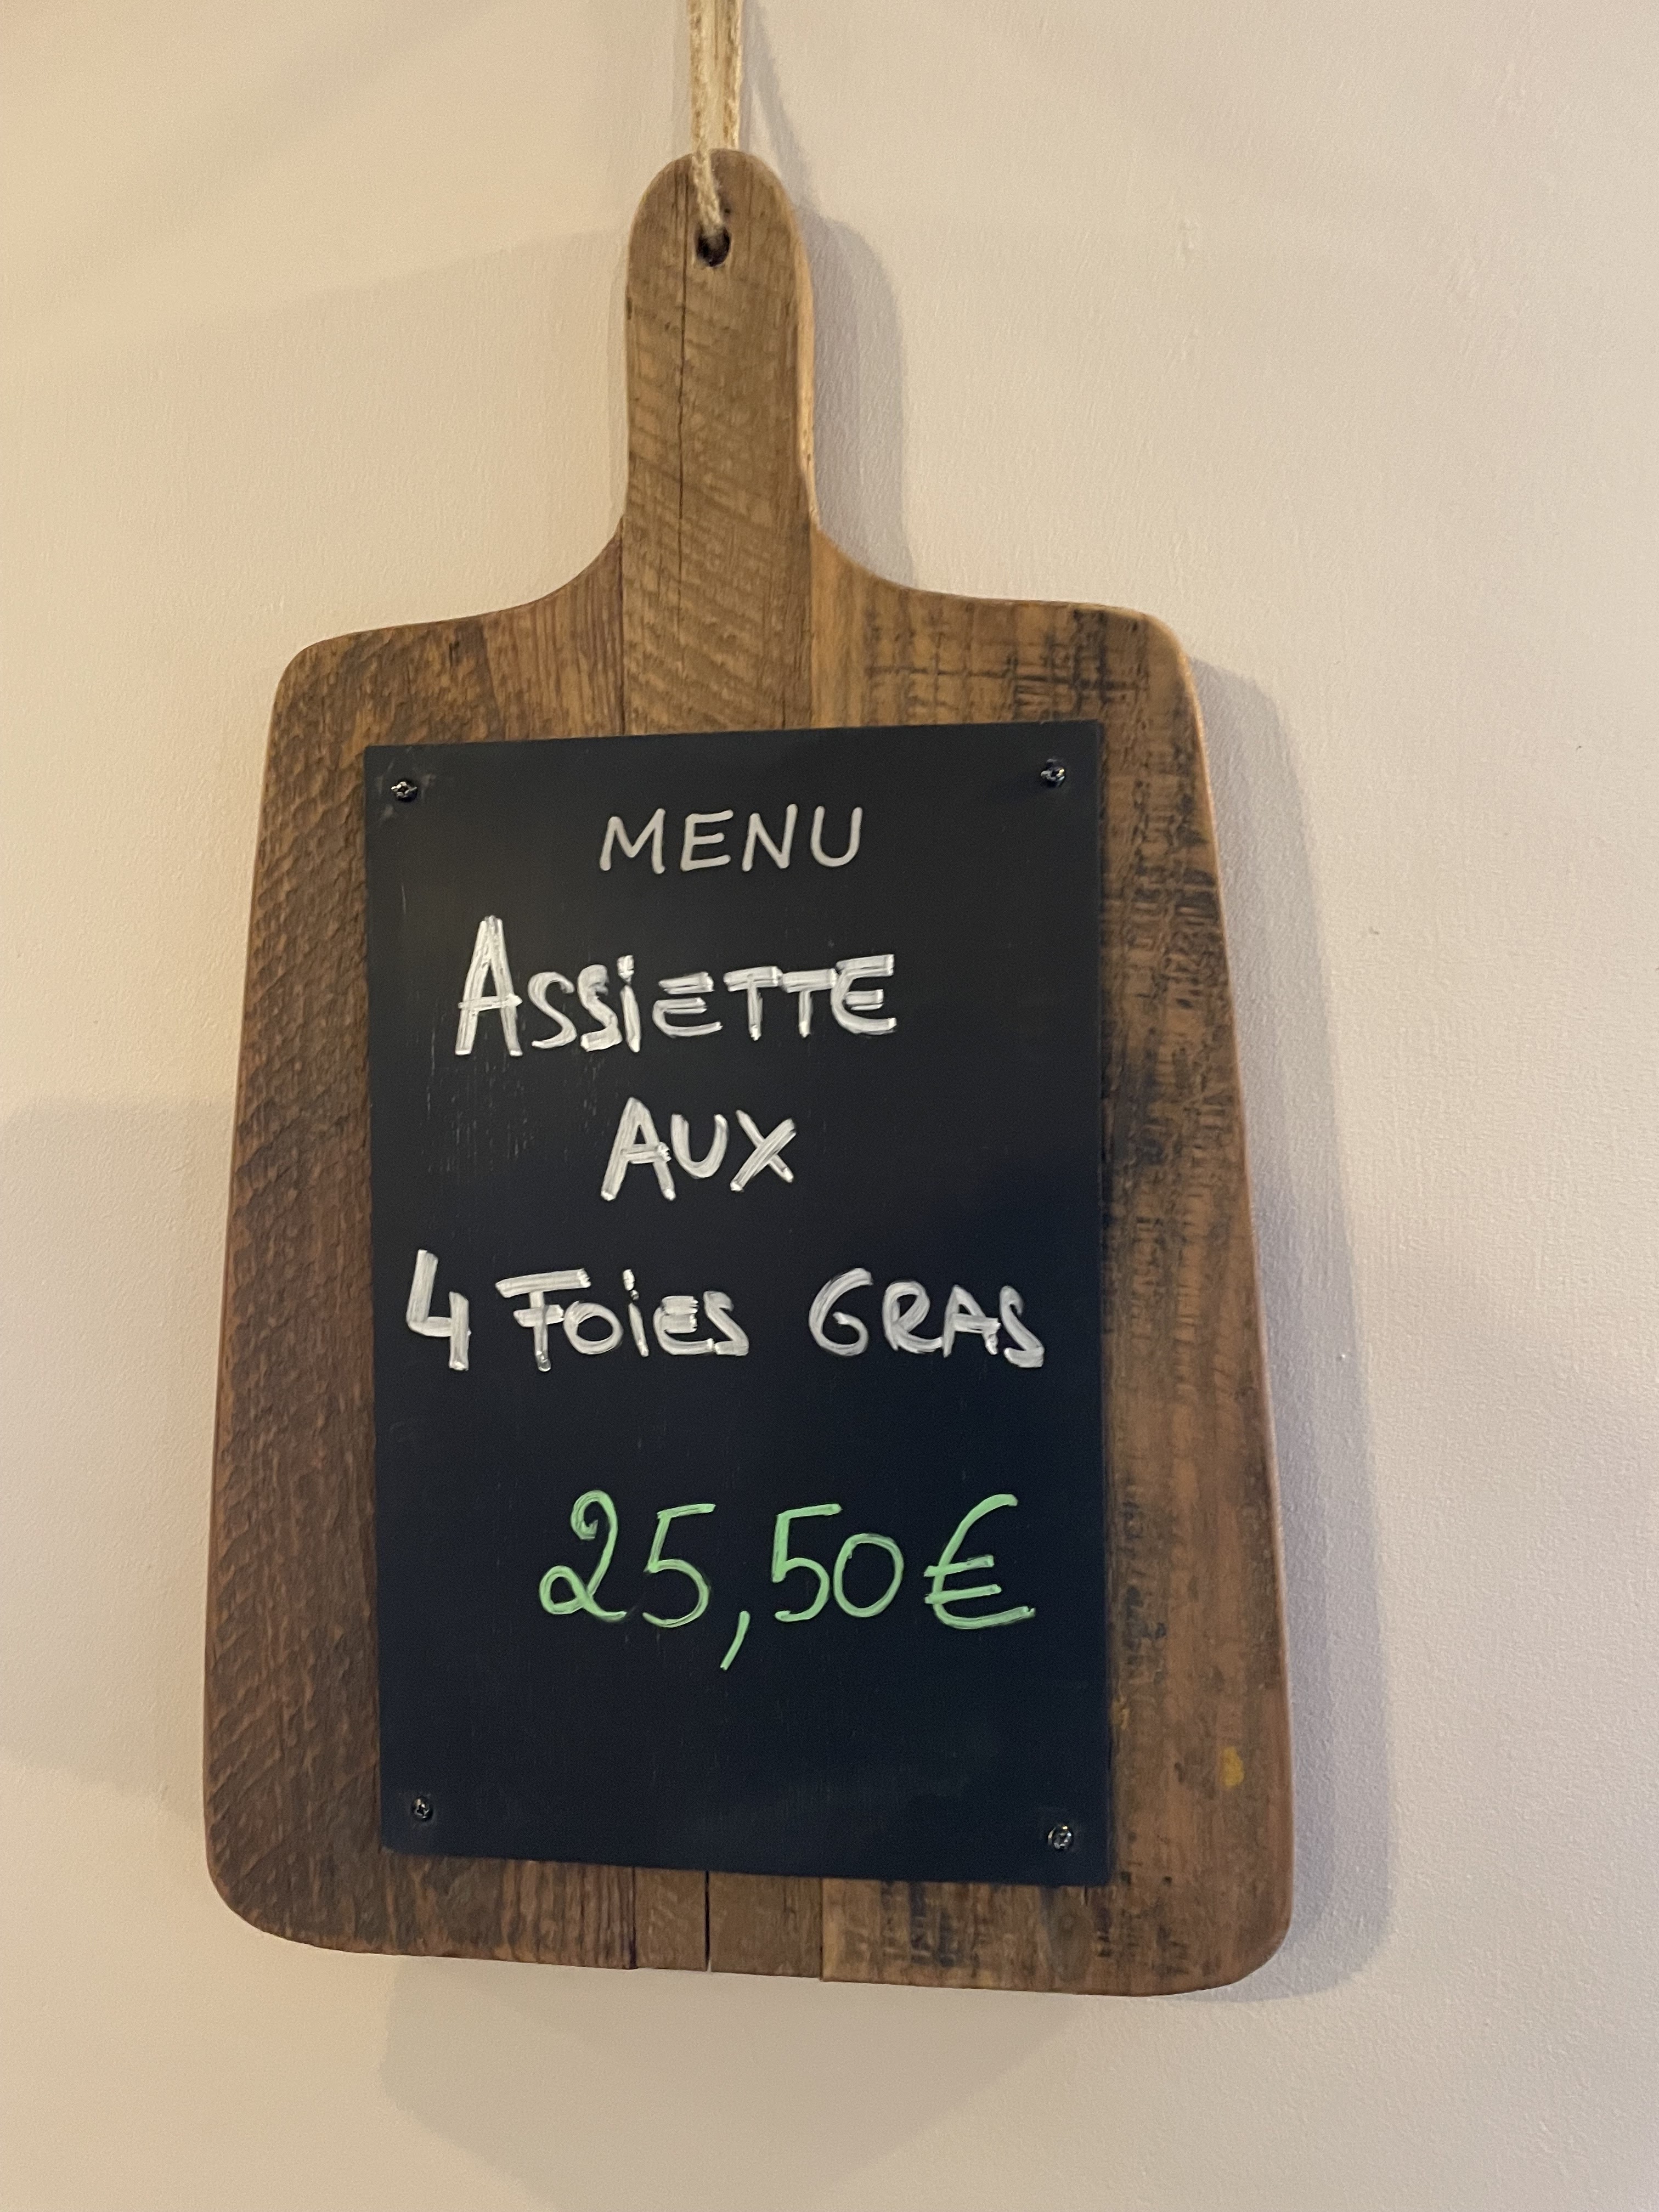 MENU
ASSiETTE
AUX
4 FOiES GRAS
25,50€